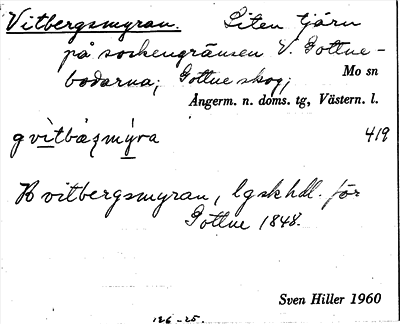 Vitbergsmyran. Liten tjärn
på sockengränsen V. Gottne-
bodarna; Gottne skog;
Mo sn
Ångerm. n. doms. tg, Västern. l.
gvìtbàʒmỳra 419
Hvitbergsmyran, lgskhdl. för
Gottne 1848.
Sven Hiller 1960
126-25.